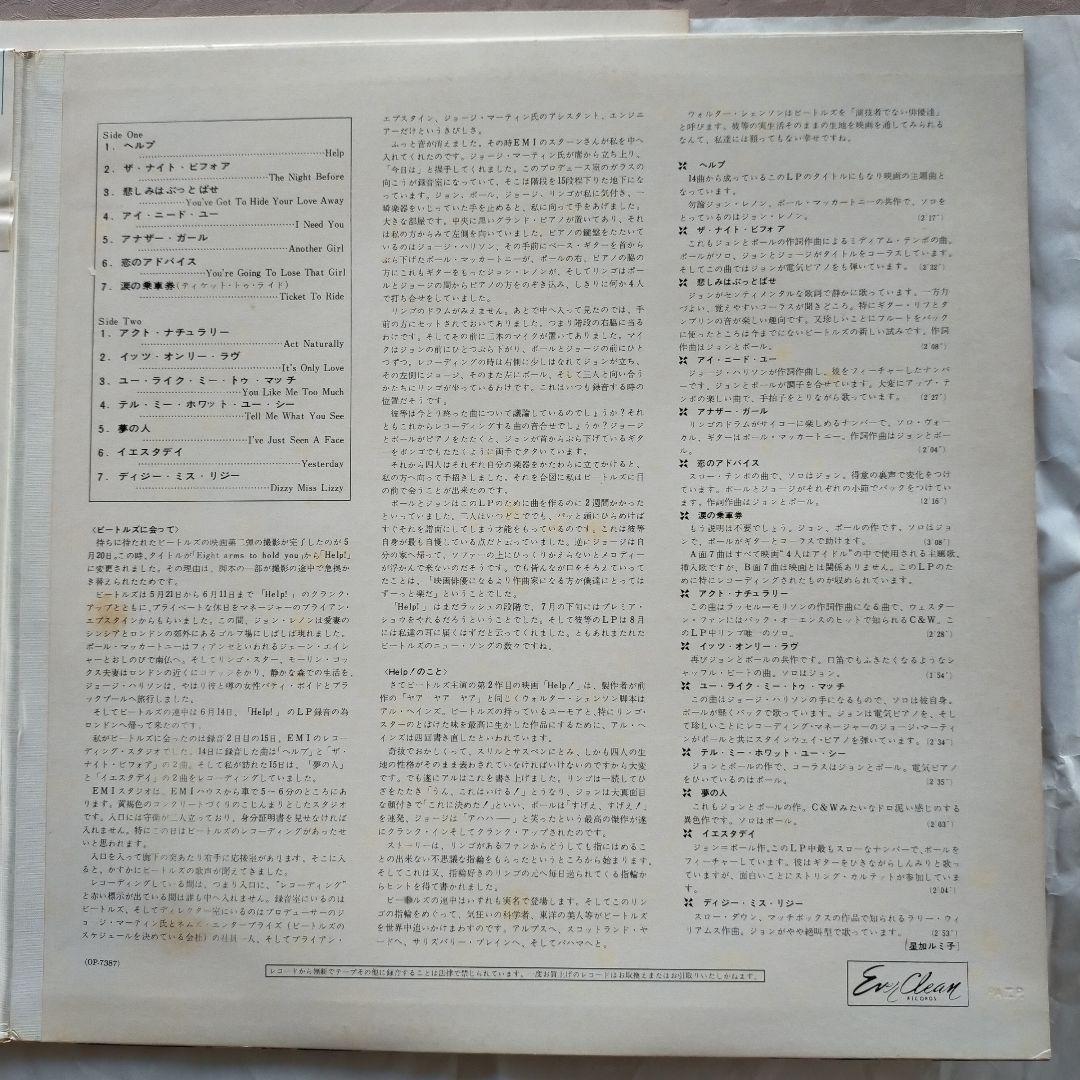 Side One
1．ヘルプ
Help
2．ザ・ナイト・ビフォア
The Night Before
3．悲しみはぶっとばせ
You've Got To Hide Your Love Away
4．アイ・ニード・ユー
I Need You
5．アナザー・ガール
Another Girl
6．恋のアドバイス
You're Going To Lose That Girl
7．涙の乗車券(ティケット・トゥ・ライド)
Ticket To Ride
Side Two
1．アクト・ナチュラリー
Act Naturally
2．イッツ・オンリー・ラヴ
It's Only Love
3．ユー・ライク・ミー・トゥ・マッチ
You Like Me Too Much
4．テル・ミー・ホワット・ユー・シー
Tell Me What You See
5．夢の人
I've Just Seen A Face
6．イエスタデイ
Yesterday
7．ディジー・ミス・リジー
Dizzy Miss Lizzy
〈ビートルズに会って〉
待ちに待たれたビートルズの映画第二弾の撮影が完了したのが5
月20日。この時、タイトルが「Eight arms to hold you」から「Help!」
に変更されました。その理由は、脚本の一部が撮影の途中で急拠か
き替えられたためです。
ビートルズは5月21日から6月11日まで「Help!」のクランク・
アップとともに、プライベートな休日をマネージャーのブライアン・
エプスタインからもらいました。この間、ジョン・レノンは愛妻の
シンシアとロンドンの郊外にあるゴルフ場にしばしば現れました。
ポール・マッカートニーはフィアンセといわれるジェーン・エイシ
ャーとおしのびで南仏へ。そしてリンゴ・スター、モーリン・コッ
クス夫妻はロンドンの近くにコテッジをかり、静かな森での生活を。
ジョージ・ハリソンは、やはり彼と噂の女性パティ・ボイドとブラ
ックプールへ旅行しました。
そしてビートルズの連中は6月14日、「Help!」のLP録音の為
ロンドンへ帰って来たのです。
私がビートルズに会ったのは録音2日目の15日、EMIのレコー
ディング・スタジオでした。14日に録音した曲は「ヘルプ」と「ザ・
ナイト・ビフォア」の2曲。そして私が訪れた15日は、「夢の人」
と「イエスタデイ」の2曲をレコーディングしていました。
EMIスタジオは、EMIハウスから車で5〜6分のところにあ
ります。黄褐色のコンクリートづくりのこじんまりとしたスタジオ
です。入口には守衛が二人立っており、身分証明書を見せなければ
入れません。特にこの日はビートルズのレコーディングがあったせ
いと思われます。
入口を入って廊下の突あたり右手に応接室があります。そこに入
ると、かすかにビートルズの歌声が聞えてきました。
レコーディングしている間は、つまり入口に、“レコーディング”
と赤い標示が出ている間は誰も中へ入れません。録音室にいるのは
ビートルズ、そしてディレクター室にいるのはプロデューサーのジ
ョージ・マーティン氏とネムズ・エンタープライズ（ビートルズの
スケジュールを決めている会社）の社員一人、そしてブライアン・
(OP-7387)
エプスタイン、ジョージ・マーティン氏のアシスタント、エンジニ
アーだけというきびしさ。
ふっと音が消えました。その時EMIのスターンさんが私を中へ
入れてくれたのです。ジョージ・マーティン氏が席から立ち上り、
「今日は」と握手してくれました。このプロデュース室のガラスの
向こうが録音室になっていて、そこは階段を15段程下りた地下にな
っています。ジョン、ポール、ジョージ、リンゴが私に気付き、一
瞬楽器をいじっていた手を止めると、私に向って手をあげました。
大きな部屋です。中央に黒いグランド・ピアノが置いてあり、それ
は私の方からみて左側を向いていました。ピアノの鍵盤をたたいて
いるのはジョージ・ハリソン、その手前にベース・ギターを首から
ぶら下げたポール・マッカートニーが、ポールの右、ピアノの脇の
方にこれもギターをもったジョン・レノンが、そしてリンゴはポー
ルとジョージの間からピアノの方をのぞき込み、しきりに何か4人
で打ち合せをしていました。
リンゴのドラムがみえません。あとで中へ入って見たのでは、手
前の方にセットされておいてありました。つまり階段の右脇に当る
わけです。そしてその前に三本のマイクが置いてありました。マイ
クはジョンの前にひとつぶら下がり、ポールとジョージの前にひと
つずつ、レコーディングの時は右側に少しはなれてジョンが立ち、
その左側にジョージ、そのまた左にポール、そして三人と向い合う
かたちにリンゴが坐っているわけです。これはいつも録音する時の
位置だそうです。
彼等は今とり終った曲について議論しているのでしょうか？それ
ともこれからレコーディングする曲の音合せでしょうか？ジョージ
とポールがピアノをたたくと、ジョンが首からぶら下げているギタ
ーをボンゴでもたたくように両手でタタいています。
それから四人はそれぞれ自分の楽器をかたわらに立てかけると、
私の方へ向って手招きしました。それを合図に私はビートルズに目
の前で会うことが出来たのです。
ポールとジョンはこのLPのために曲を作るのに2週間かかった
といっていました。二人はいつどこででも、パッと頭にひらめけば
すぐそれを譜面にしてしまう才能をもっているのです。これは彼等
自身が最も自慢している点だと云っていました。逆にジョージは自
分の家へ帰って、ソファーの上にひっくりかえらないとメロディー
が浮かんで来ないのだそうです。でも皆んなが口をそろえていって
たことは、「映画俳優になるより作曲家になる方が僕達にとっては
ずーっと楽だ」ということでした。
「Help!」はまだラッシュの段階で、7月の下旬にはプレミア・
ショウをやれるだろうということでした。そして彼等のLPは8月
には私達の耳に届くはずだと云ってくれました。ともあれまたれた
ビートルズのニュー・ソングの数々ですね。
〈Help!のこと〉
さてビートルズ主演の第2作目の映画「Help！」は、製作者が前
作の「ヤァ ヤァ ヤァ」と同じくウォルター・シェンソン脚本は
アル・ヘインズ。ビートルズの持っているユーモアと、特にリンゴ・
スターのとぼけた味を最高に生かした作品にするために、アル・ヘ
インズは四回書き直したといわれています。
奇抜でおかしくって、スリルとサスペンにとみ、しかも四人の生
地の性格がそのまま表わされていなければいけないのですから大変
です。でも遂にアルはこれを書き上げました。リンゴは一読してひ
ざをたたき「うん、これはいける！」とうなり、ジョンは大真面目
な顔付きで「これに決めた!」といい、ポールは「すげえ、すげえ！」
を連発、ジョージは「アハハ―」と笑ったという最高の傑作が遂
にクランク・インそしてクランク・アップされたのです。
ストーリーは、リンゴがあるファンからどうしても指にはめるこ
との出来ない不思議な指輪をもらったというところから始まります。
そしてこれは又、指輪好きのリンゴの元へ毎日送られてくる指輪か
らヒントを得て書かれました。
ビートルズの連中はいずれも実名で登場します。そしてこのリン
ゴの指輪をめぐって、気狂いの科学者、東洋の美人等がビートルズ
を世界中追いかけまわすのです。アルプスへ、スコットランド・ヤ
ードへ、サリスバリー・プレインへ、そしてバハマへと。
ウォルター・シェンソンはビートルズを「演技者でない俳優達」
と呼びます。彼等の実生活そのままの生地を映画を通してみられる
なんて、私達には願ってもない幸せですね。
ヘルプ
14曲から成っているこのLPのタイトルにもなり映画の主題曲と
なっています。
勿論ジョン・レノン、ポール・マッカートニーの共作で、ソロを
とっているのはジョン・レノン。 (2′17″)
ザ・ナイト・ビフォア
これもジョンとポールの作詞作曲によるミディアム・テンポの曲。
ポールがソロ、ジョンとジョージがタイトルをコーラスしています。
そしてこの曲ではジョンが電気ピアノをも弾いています。 (2′32″)
悲しみはぶっとばせ
ジョンがセンティメンタルな歌詞で静かに歌っています。一方力
づよい、覚えやすいコーラスが聞きどころ。特にギター・リフとタ
ンブリンの音が楽しい趣向です。又珍しいことにフルートをバック
に使ったところは今までにないビートルズの新しい試みです。作詞
作曲はジョンとポール。 (2′08″)
アイ・ニード・ユー
ジョージ・ハリソンが作詞作曲し、彼をフィーチャーしたナンバ
ーです。ジョンとポールが調子を合せています。大変にアップ・テ
ンポの楽しい曲で、手拍子をとりながら歌っています。 (2′27″)
アナザー・ガール
リンゴのドラムがサイコーに楽しめるナンバーで、ソロ・ヴォー
カル、ギターはポール・マッカートニー。作詞作曲はジョンとポー
ル。 (2′04″)
恋のアドバイス
スロー・テンポの曲で、ソロはジョン。得意の裏声で変化をつけ
ています。ポールとジョージがそれぞれの小節でバックをつけてい
ます。作詞作曲はジョンとポール。 (2′16″)
涙の乗車券
もう説明は不要でしょう。ジョン、ポールの作です。ソロはジョ
ンで、ポールがギターとコーラスで助けます。 (3′08″)
A面7曲はすべて映画“4人はアイドル”の中で使用される主題歌、
挿入歌ですが、B面7曲は映画とは関係ありません。このLPのた
めに特にレコーディングされたものが収められています。
アクト・ナチュラリー
この曲はラッセル―モリソンの作詞作曲になる曲で、ウェスター
ン・ファンにはバック・オーエンスのヒットで知られるC&W。こ
のLP中リンゴ唯一のソロ。 (2′28″)
イッツ・オンリー・ラヴ
再びジョンとポールの共作です。口笛でもふきたくなるようなシ
ャッフル・ビートの曲。ソロはジョン。 (1′54″)
ユー・ライク・ミー・トゥ・マッチ
この曲はジョージ・ハリソンの手になるもので、ソロは彼自身。
ポールが軽くバックで歌っています。ジョンは電気ピアノを、そし
て珍しいことにレコーディング・マネージャーのジョージ・マーティ
ンがポールと共にスタインウェイ・ピアノを弾いています。 (2′34″)
テル・ミー・ホワット・ユー・シー
ジョンとポールの作で、コーラスはジョンとポール。電気ピアノ
をひいているのはポール。 (2′35″)
夢の人
これもジョンとポールの作。C&Wみたいなドロ泥い感じのする
異色作です。ソロはポール。 (2′03″)
イエスタデイ
ジョン＝ポール作。このLP中最もスローなナンバーで、ポールを
フィーチャーしています。彼はギターをひきながらしんみりと歌っ
ていますが、面白いことにストリング・カルテットが参加していま
す。 (2′04″)
ディジー・ミス・リジー
スロー・ダウン、マッチボックスの作品で知られるラリー・ウィ
リアムス作曲。ジョンがやや絶叫型で歌っています。 (2′53″)
［星加ルミ子］
レコードから無断でテープその他に録音することは法律で禁じられています。一度お買上げのレコードはお取換えまたはお引取りいたしかねます。
Ever Clean
RECORDS